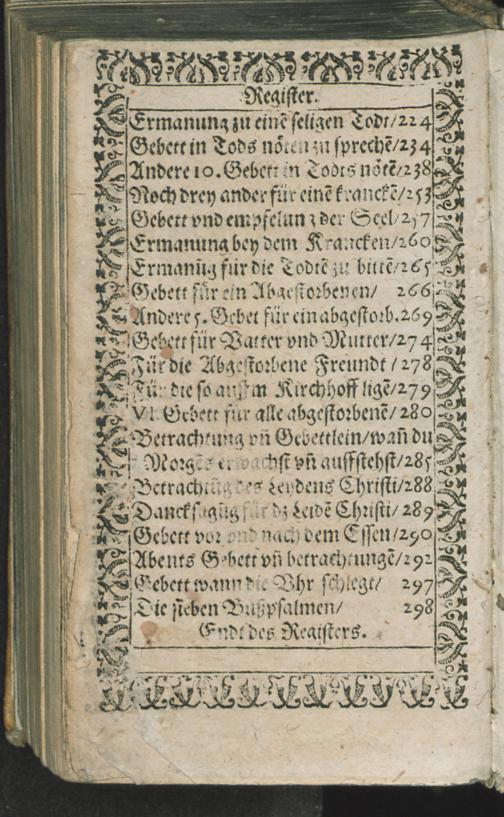 Register.
Ermanung zu einē seligen Todt/224
Gebett in Tods nöten zu sprechē/234
Andere 10. Gebett in Todts nötē/238
Noch drey ander für einē kranckē/253
Gebett vnd empfelung der Seel/257
Ermanung bey dem Krancken/260
Ermanūg für die Todtē zu bittē/265
Gebett für ein Abgestorbenen/ 266
Andere 5. Gebet für ein abgestorb. 269
Gebett für Vatter vnd Mutter/274
Für die Abgestorbene Freundt / 278
Für die so auffm Kirchhoff ligē/279
VI. Gebett für alle abgestorbenē/280
Betrachtung vn̄ Gebettlein/wan̄ du
Morgēs erwachst vn̄ auffstehst/285
Betrachtūg des Leydens Christi/288
Dancksagūg für dz Leidē Christi/289
Gebett vor vnd nach dem Essen/290
Abents Gebett vn̄ betrachtungē/292
Gebett wann die Vhr schlegt/ 297
Die sieben Bußpsalmen/ 298
Endt des Registers.